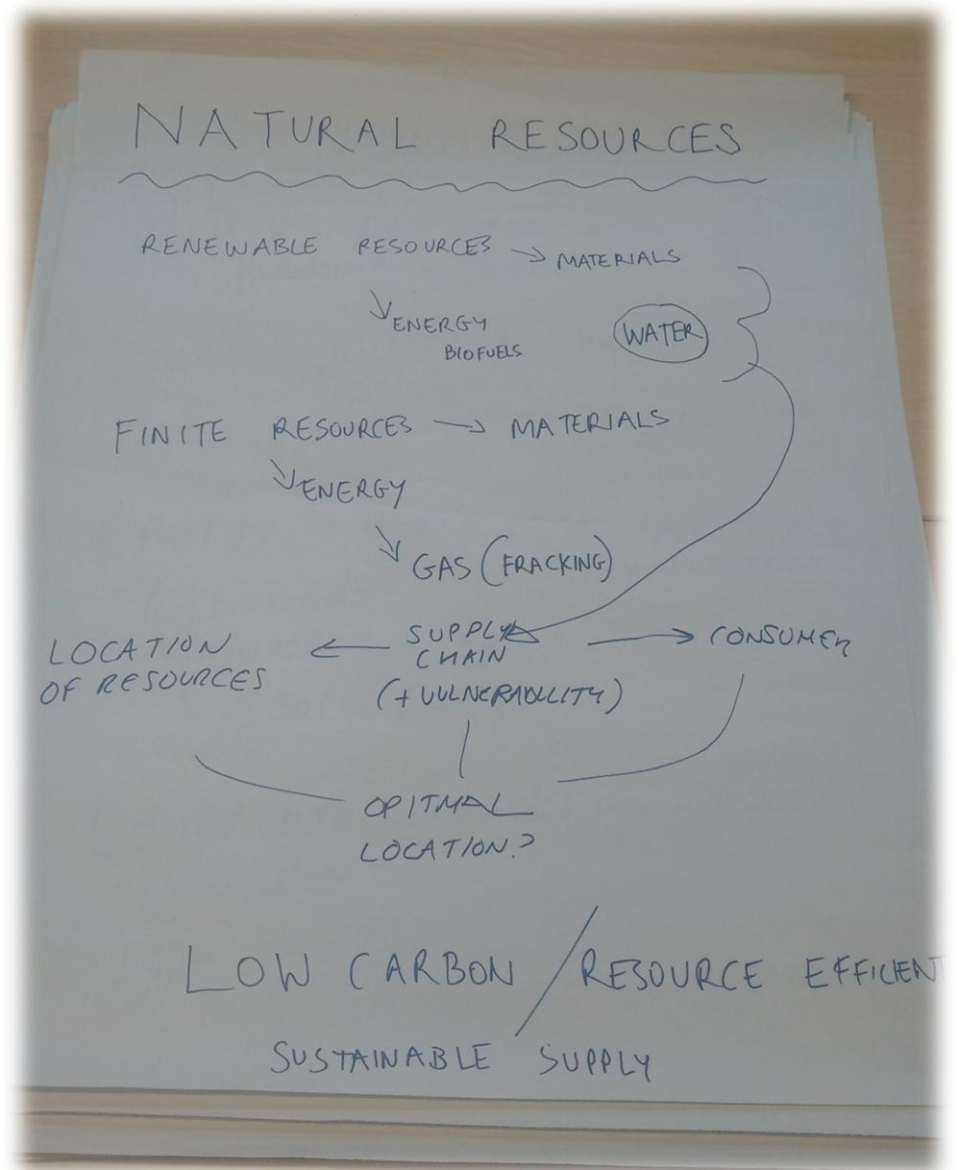 NATURAL RESOURCES
RENEWABLE RESOURCES → MATERIALS
↘ ENERGY
BIOFUELS
WATER
FINITE RESOURCES → MATERIALS
↘ ENERGY
↘ GAS (FRACKING)
LOCATION OF RESOURCES ← SUPPLY CHAIN → CONSUMER
(+ VULNERABILITY)
OPITMAL
LOCATION?
LOW CARBON / RESOURCE EFFICIENT
SUSTAINABLE SUPPLY